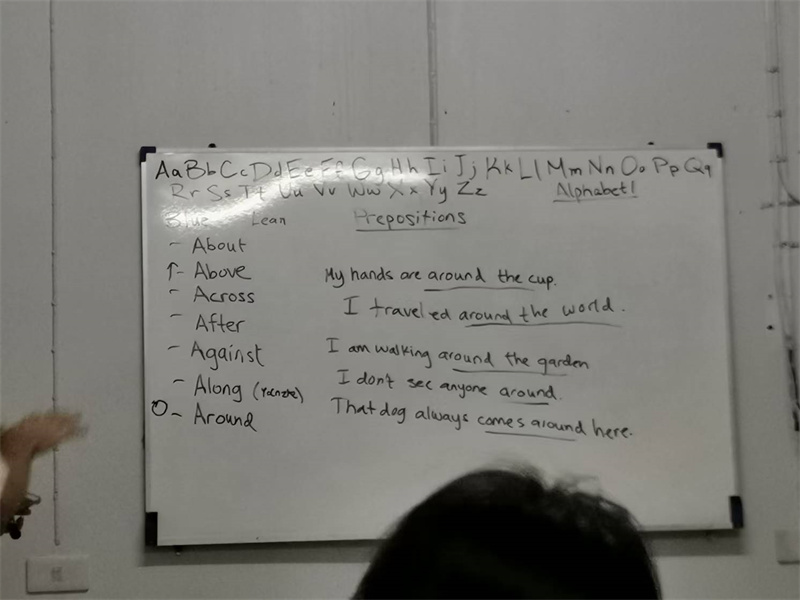 Aa Bb Cc Dd Ee Ff Gg Hh Ii Jj Kk Ll Mm Nn Oo Pp Qq
Rr Ss Tt Uu Vv Ww Xx Yy Zz Alphabet!
Blue Lean Prepositions
- About
↑- Above
- Across
- After
- Against
- Along
- Around
My hands are around the cup.
I traveled around the world.
I am walking around the garden
I don't see anyone around.
That dog always comes around here.